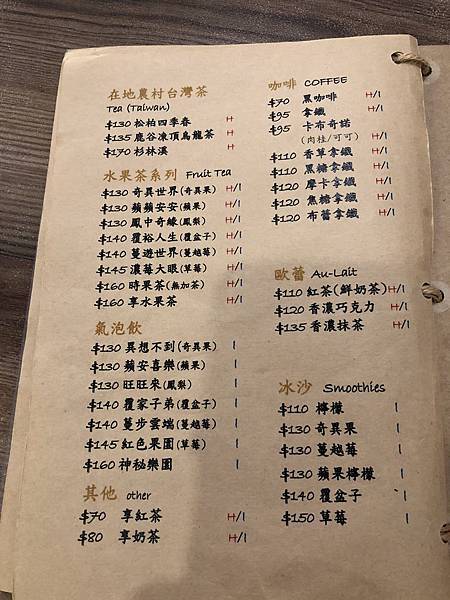 在地農村台灣茶
Tea (Taiwan)
$130 松柏四季春 H
$135 鹿谷凍頂烏龍茶 H
$170 杉林溪 H
水果茶系列 Fruit Tea
$130 奇異世界(奇異果) H/I
$130 蘋蘋安安(蘋果) H/I
$130 鳳中奇緣(鳳梨) H/I
$140 覆裕人生(覆盆子) H/I
$140 蔓遊世界(蔓越莓) H/I
$145 濃莓大眼(草莓) H/I
$160 時果茶(無加茶) H/I
$160 享水果茶 H/I
氣泡飲
$130 異想不到(奇異果) I
$130 蘋安喜樂(蘋果) I
$130 旺旺來(鳳梨) I
$140 覆家子弟(覆盆子) I
$140 蔓步雲端(蔓越莓) I
$145 紅色果園(草莓) I
$160 神秘樂園 I
其他 other
$70 享紅茶 H/I
$80 享奶茶 H/I
咖啡 COFFEE
$70 黑咖啡 H/I
$95 拿鐵 H/I
$95 卡布奇諾
(肉桂/可可) H/I
$110 香草拿鐵 H/I
$110 黑糖拿鐵 H/I
$120 摩卡拿鐵 H/I
$120 焦糖拿鐵 H/I
$120 布蕾拿鐵 H/I
歐蕾 Au-Lait
$110 紅茶(鮮奶茶) H/I
$120 香濃巧克力 H/I
$135 香濃抹茶 H/I
冰沙 Smoothies
$110 檸檬 I
$130 奇異果 I
$130 蔓越莓 I
$130 蘋果檸檬 I
$140 覆盆子 I
$150 草莓 I